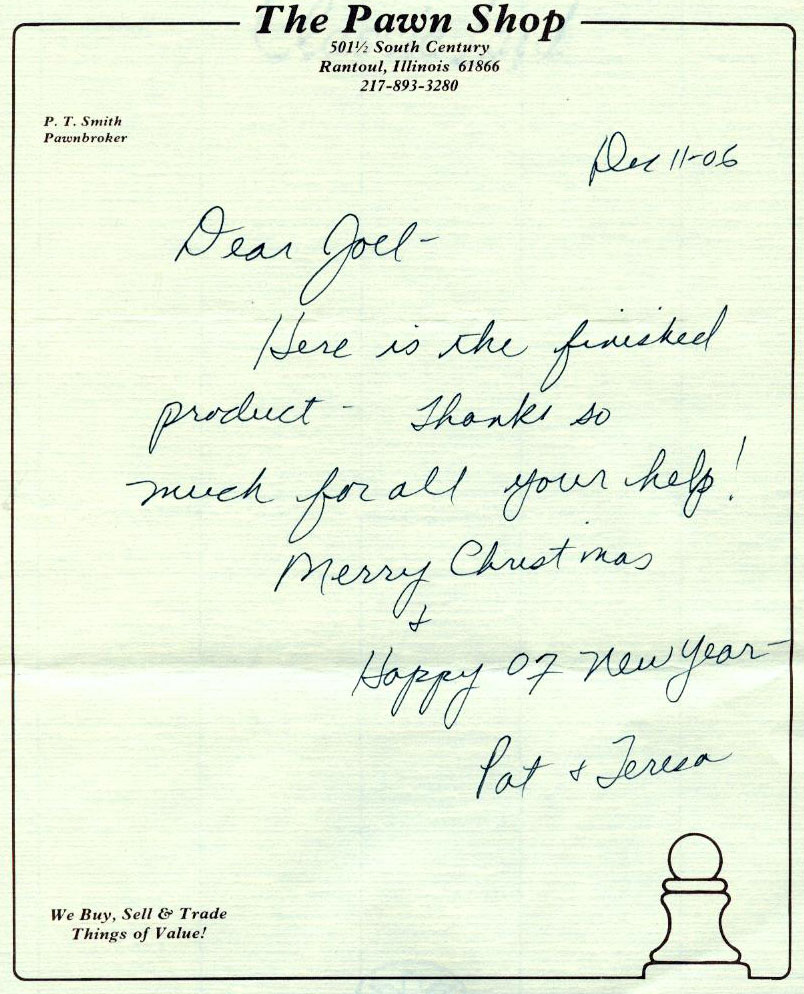 The Pawn Shop
501½ South Century
Rantoul, Illinois 61866
217-893-3280
P. T. Smith
Pawnbroker
Dec 11-06
Dear Joel-
Here is the finished
product - Thanks so
much for all your help!
Merry Christmas
&
Happy 07 New Year-
Pat & Teresa
We Buy, Sell & Trade
Things of Value!